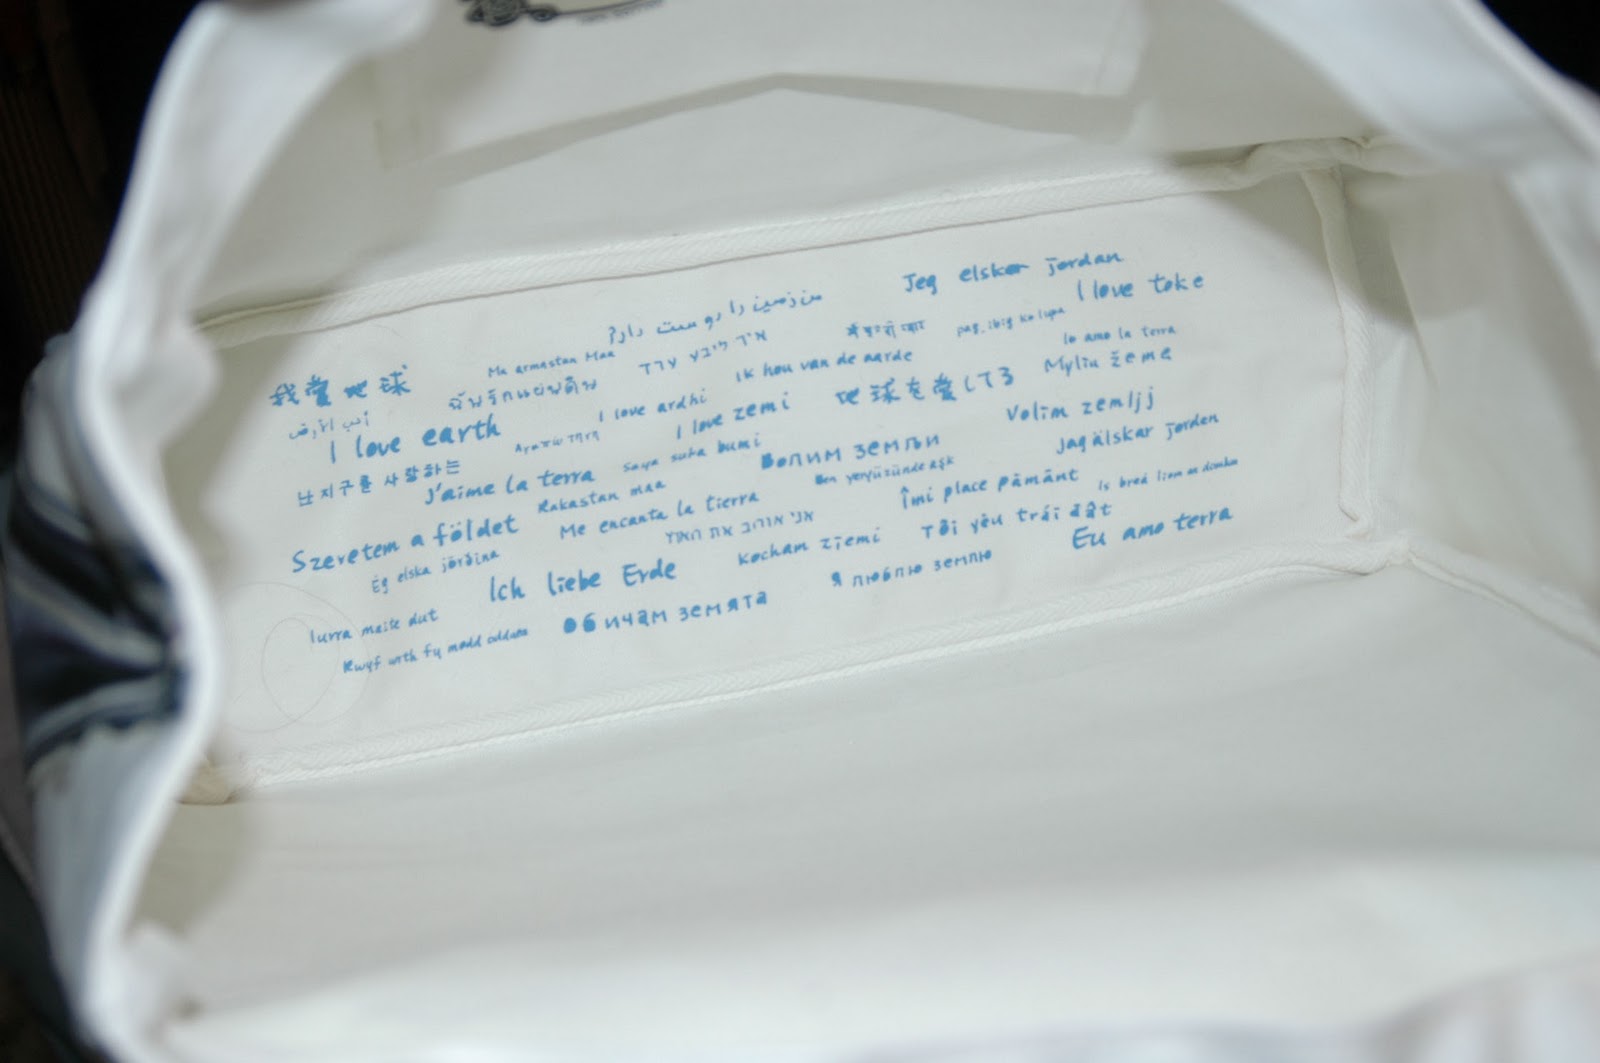 Jeg elsker jordan
من زمین را دوست دارم
I love toke
pag.ibig ko lupa
Ma armastan Maa
איך ליבע ערד
Io amo la terra
我愛地球
ฉันรักแผ่นดิน
Ik hou van de aarde
Myliu žeme
أحب الأرض
I love ardhi
I love zemi
地球を愛してる
I love earth
Volim zemljj
난 지구를 사랑하는
j'aime la terra
Saya suka bumi
Волим земљи
Jag älskar jorden
Rakastan maa
Ben yeryüzünde aşk
Szeretem a földet
Me encanta la tierra
Îmi place pământ
אני אוהב את הארץ
Ég elska jörðina
Kocham ziemi
Tôi yêu trái đất
Ich liebe Erde
Eu amo terra
Я люблю землю
lurra maite dut
Обичам земята
Rwyf wrth fy modd